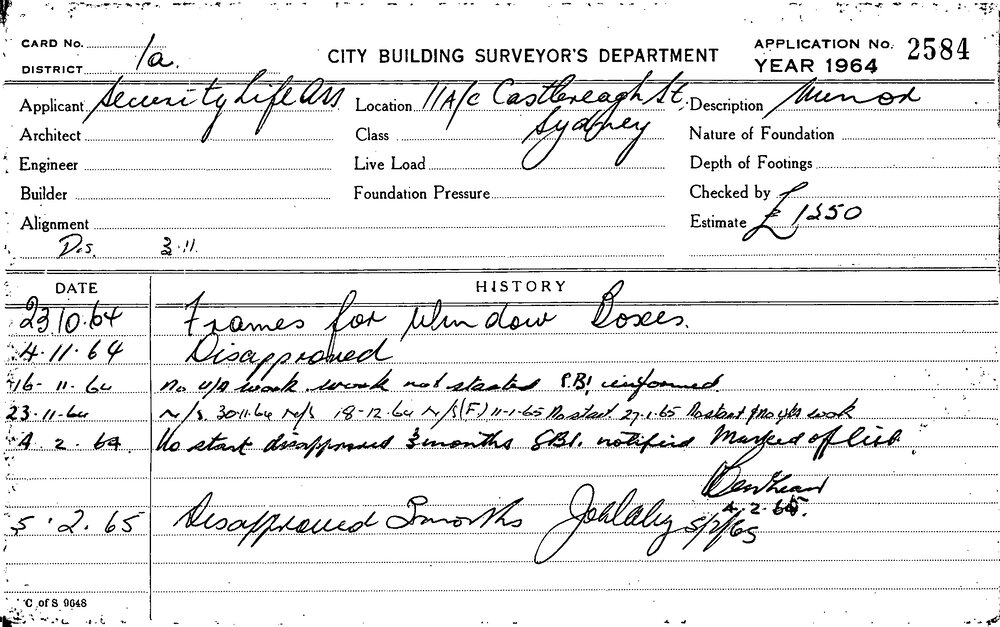 CARD No. 1a.
DISTRICT
CITY BUILDING SURVEYOR'S DEPARTMENT
APPLICATION No. 2584
YEAR 1964
Applicant Security Life Ass
Location 11A/c Castlereagh St, Sydney
Description Minor
Architect
Class
Nature of Foundation
Engineer
Live Load
Depth of Footings
Builder
Foundation Pressure
Checked by
Alignment
Estimate £1250
Dis. 3.11.
DATE HISTORY
23.10.64 Frames for Window Boxes.
4.11.64 Disapproved
16-11-64 No u/a work work not started S.B.I. informed
23-11-64 N/S. 30.11.64 N/S 18-12.64 N/S (F) 11-1-65 No start 27.1.65 No start & No u/a work
4.2.64 No start disapproved 3 months S.B.I. notified Marked off list.
4.2.65.
5.2.65 Disapproved 3 months 5/2/65
C of S 9648